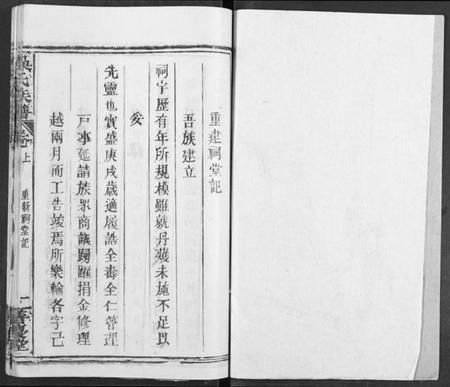 重建祠堂記
吾族建立
祠宇歷有年所規模雖就丹雘未施不足以
妥
先靈也實盛庚戌歲適履誥全壽全仁管理
戸事延請族眾商議踴躍捐金修理
越兩月而工告竣焉所樂輸各字己
吳氏族譜
卷上
重新祠堂記
一